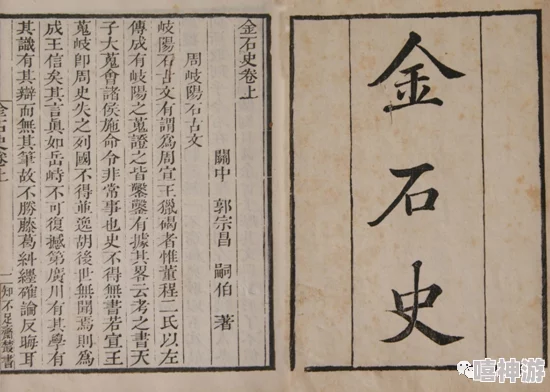 金石史
金石史卷上
關中 郭宗昌 嗣伯 著
周岐陽石古文
岐陽石古文有謂為周宣王獵碣者惟董程二氏以左
傳成有岐陽之蒐證之皆鑿鑿有據其畧云考之書天
子大蒐會諸侯施命令非常事也史不得無書若宣王
蒐岐即周史失之列國不得並逸胡後世無聞焉則為
成王信矣其言真如岳峙不可復撼第廣川有其學有
其識有其辯而無其筆故不勝藤葛糾纏確論反晦耳
金石史卷上
一 知不足齋叢書
嘻神游